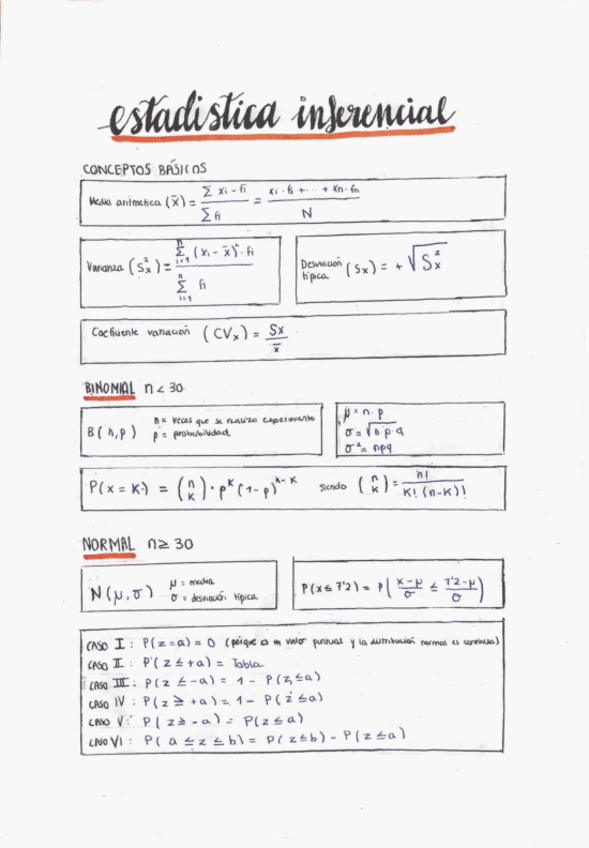 estadistica inferencial
CONCEPTOS BÁSICOS
Media aritmetica (x̄) = Σ xi - fi / Σ fi = xi · fi + ··· + xn · fn / N
Varianza (S²x) = Σ (xi - x̄)² · fi / Σ fi n i=1 n i=1
Desviación típica (Sx) = + √S²x
Coeficiente variación (CVx) = Sx / x̄
BINOMIAL n < 30
B(n,p) n = veces que se realiza experimento
p = probabilidad
μ = n · p
σ = √n·p·q
σ² = npq
P(x = K) = (n K) · p^K (1-p)^n-K siendo (n K) = n! / K! (n-K)!
NORMAL n ≥ 30
N(μ,σ) μ = media
σ = desviación típica
P(x ≤ 7'2) = P(x-μ / σ ≤ 7'2-μ / σ)
CASO I : P(z=a) = 0 (porque es un valor puntual y la distribución normal es continua)
CASO II : P(z ≤ +a) = Tabla
CASO III : P(z ≤ -a) = 1 - P(z ≤ a)
CASO IV : P(z ≥ +a) = 1 - P(z ≤ a)
CASO V : P(z ≥ -a) = P(z ≤ a)
CASO VI : P(a ≤ z ≤ b) = P(z ≤ b) - P(z ≤ a)